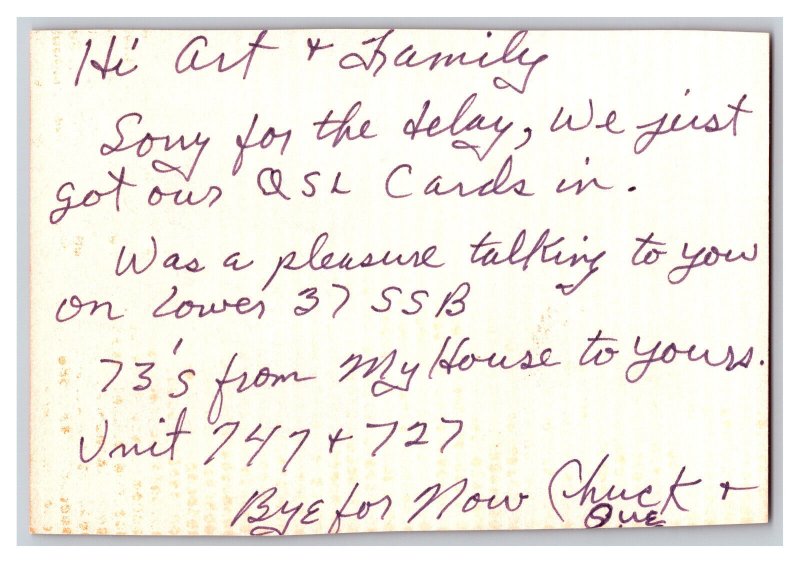 Hi Art + Family
Sorry for the delay, We just
got our QSL Cards in.
Was a pleasure talking to you
on Lower 37 SSB
73's from My House to Yours.
Unit 747 + 727
Bye for Now Chuck +
Que